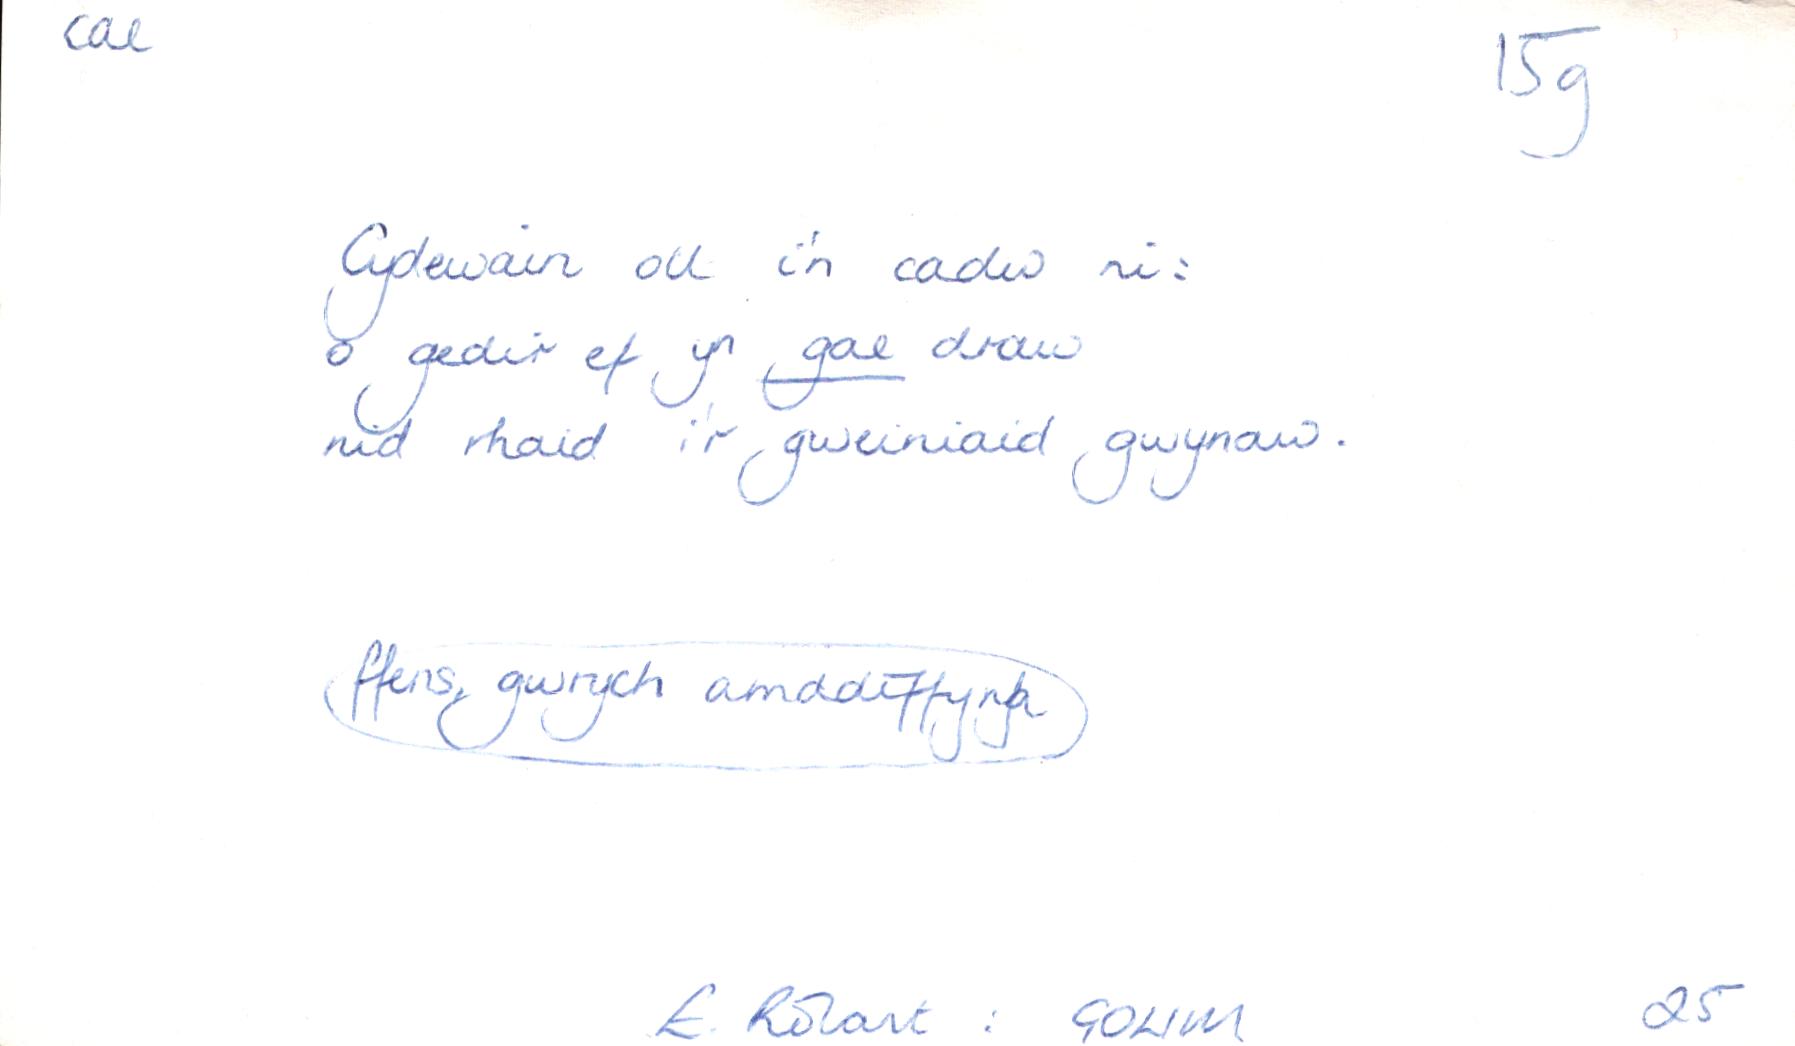 cae
15g
Cydewain oll i'n cadw ni:
o gedir ef yn gae draw
nid rhaid i'r gweiniaid gwynaw.
ffens, gwrych amddiffynn
E. Rolant : GOLlM
25